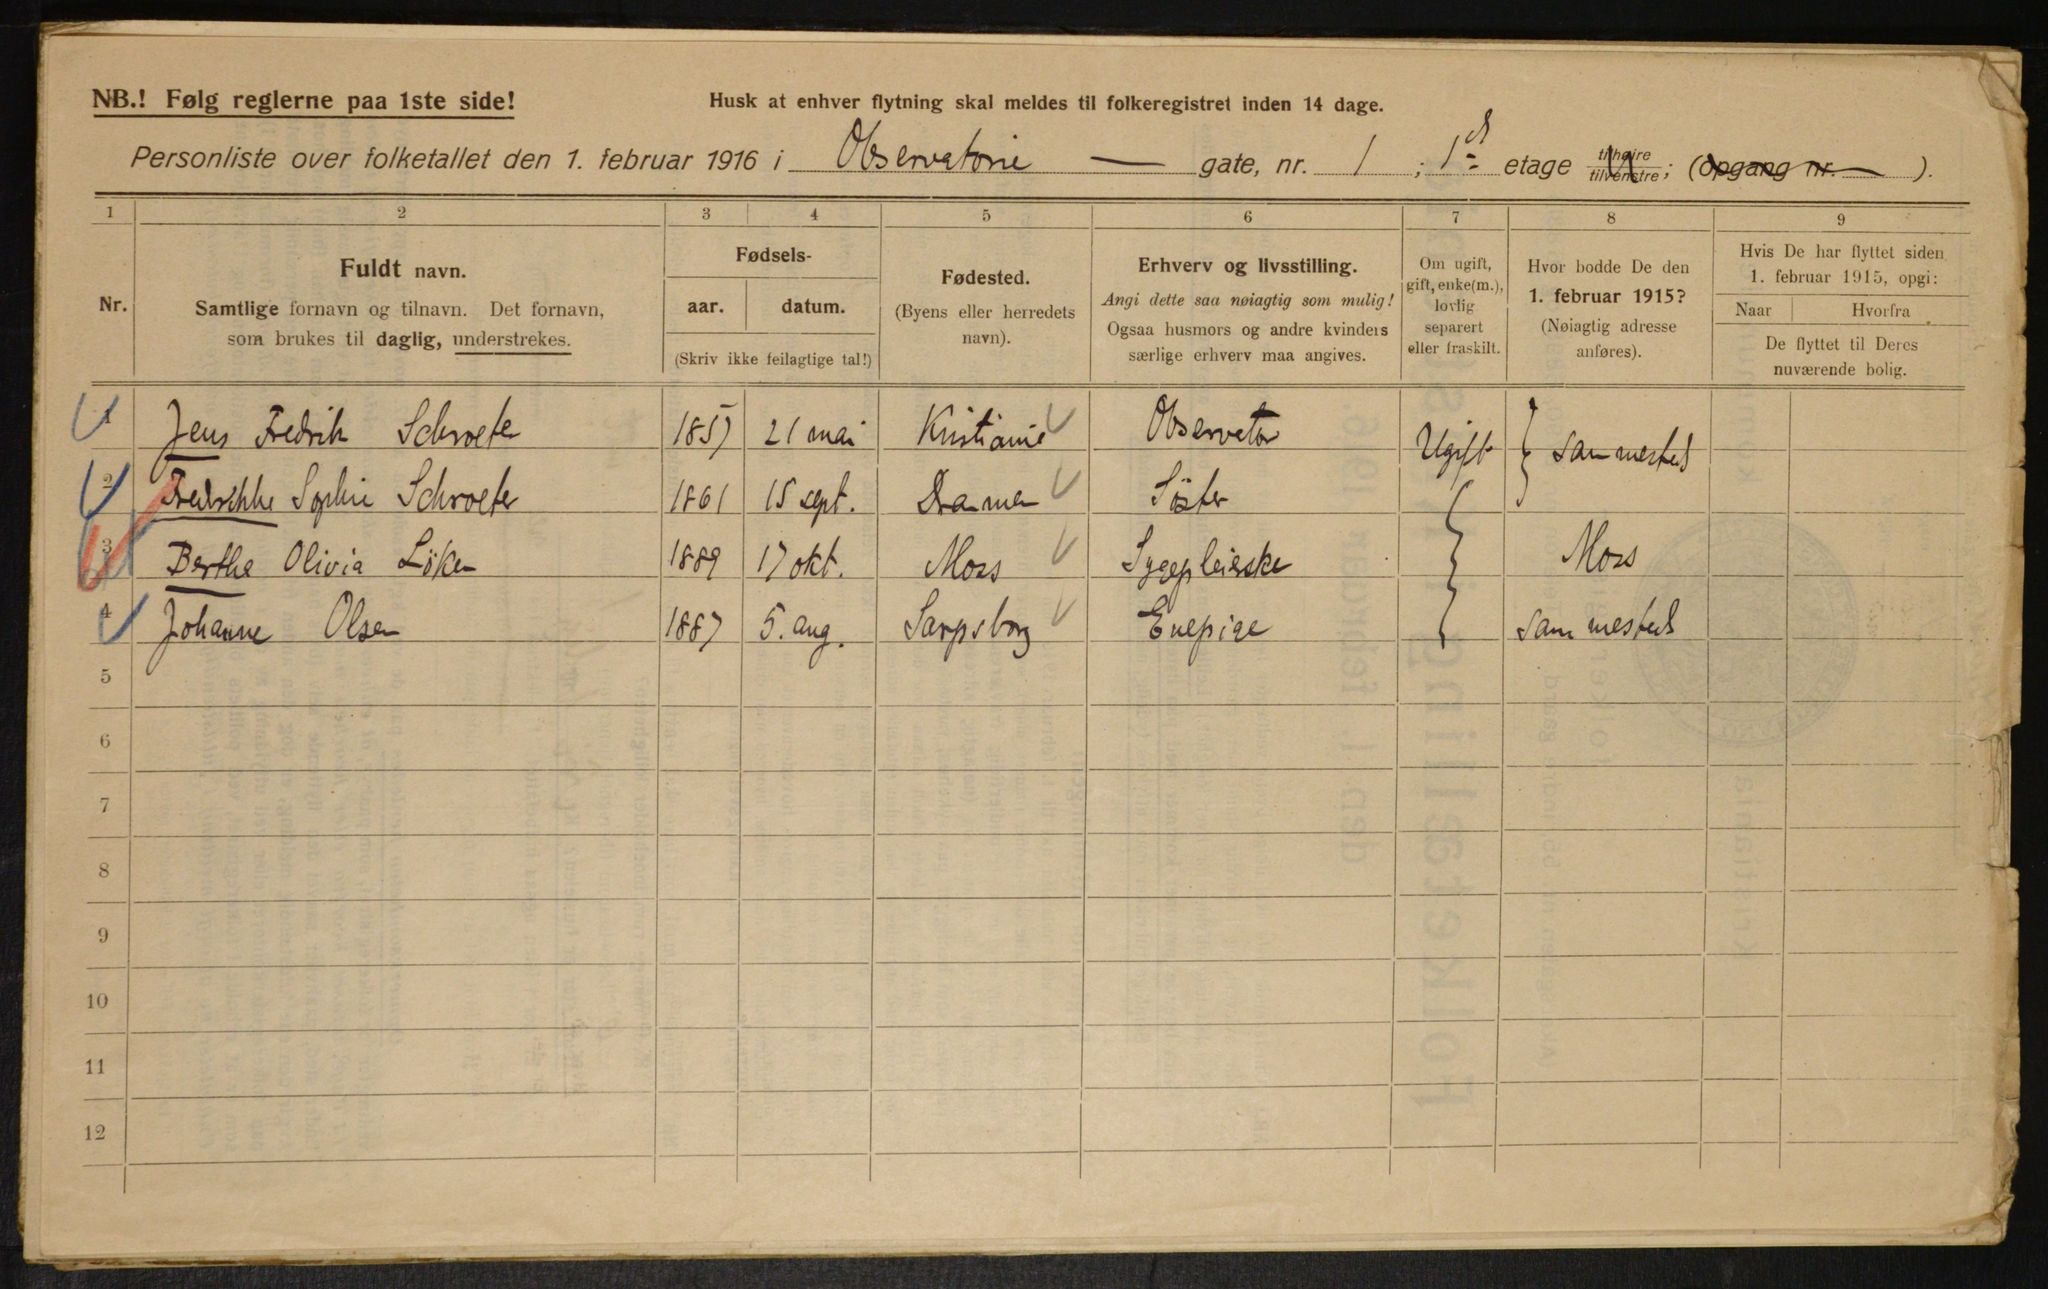 NB.! Følg reglerne paa 1ste side!
Husk at enhver flytning skal meldes til folkeregistret inden 14 dage.
Personliste over folketallet den 1. februar 1916 i Observatorie — gate, nr. 1 ; 1ste etage tilhøire tilvenstre; (opgang nr. ).
1 2 3 4 5 6 7 8 9
Nr.
Fuldt navn.
Samtlige fornavn og tilnavn. Det fornavn,
som brukes til daglig, understrekes.
Fødsels-
aar. datum.
(Skriv ikke feilagtige tal!)
Fødested.
(Byens eller herredets
navn).
Erhverv og livsstilling.
Angi dette saa nøiagtig som mulig!
Ogsaa husmors og andre kvinders
særlige erhverv maa angives.
Om ugift,
gift, enke(m.),
lovlig
separert
eller fraskilt.
Hvor bodde De den
1. februar 1915?
(Nøiagtig adresse
anføres).
Hvis De har flyttet siden
1. februar 1915, opgi:
Naar Hvorfra
De flyttet til Deres
nuværende bolig.
1 Jens Fredrik Schroeter 1857 21 mai Kristiania Observator Ugift sammesteds
2 Fredrikke Sophie Schroeter 1861 15 sept. Drammen Söster
3 Berthe Olivia Löken 1889 17 okt. Moss Sygepleierske Moss
4 Johanne Olsen 1887 5. aug. Sarpsborg Enepige sammesteds
5
6
7
8
9
10
11
12